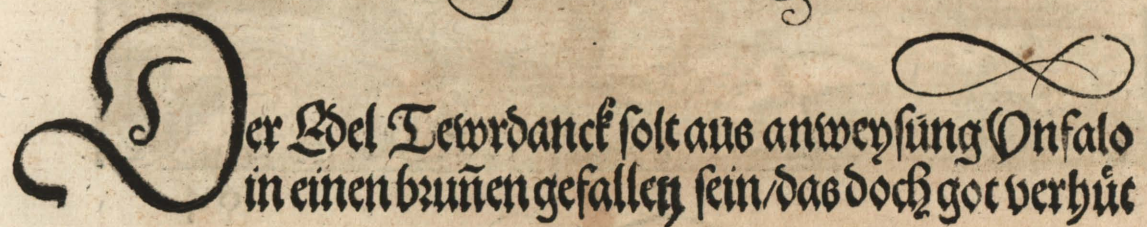 Der Edel Tewrdanck solt aus anweysūng Vnfalo
in einen brun̄en gefallen sein/das doch got verhůt